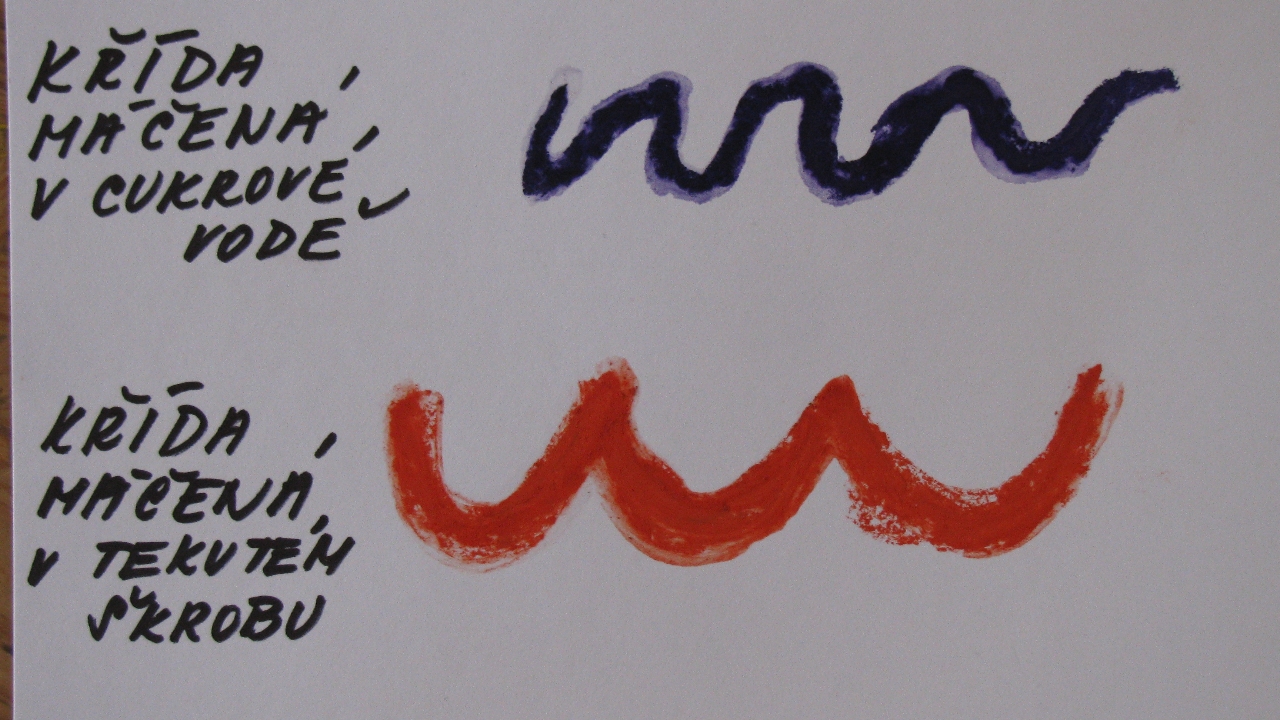 KŘÍDA
MÁČENÁ
V CUKROVÉ
VODĚ
KŘÍDA
MÁČENÁ
V TEKUTÉM
ŠKROBU